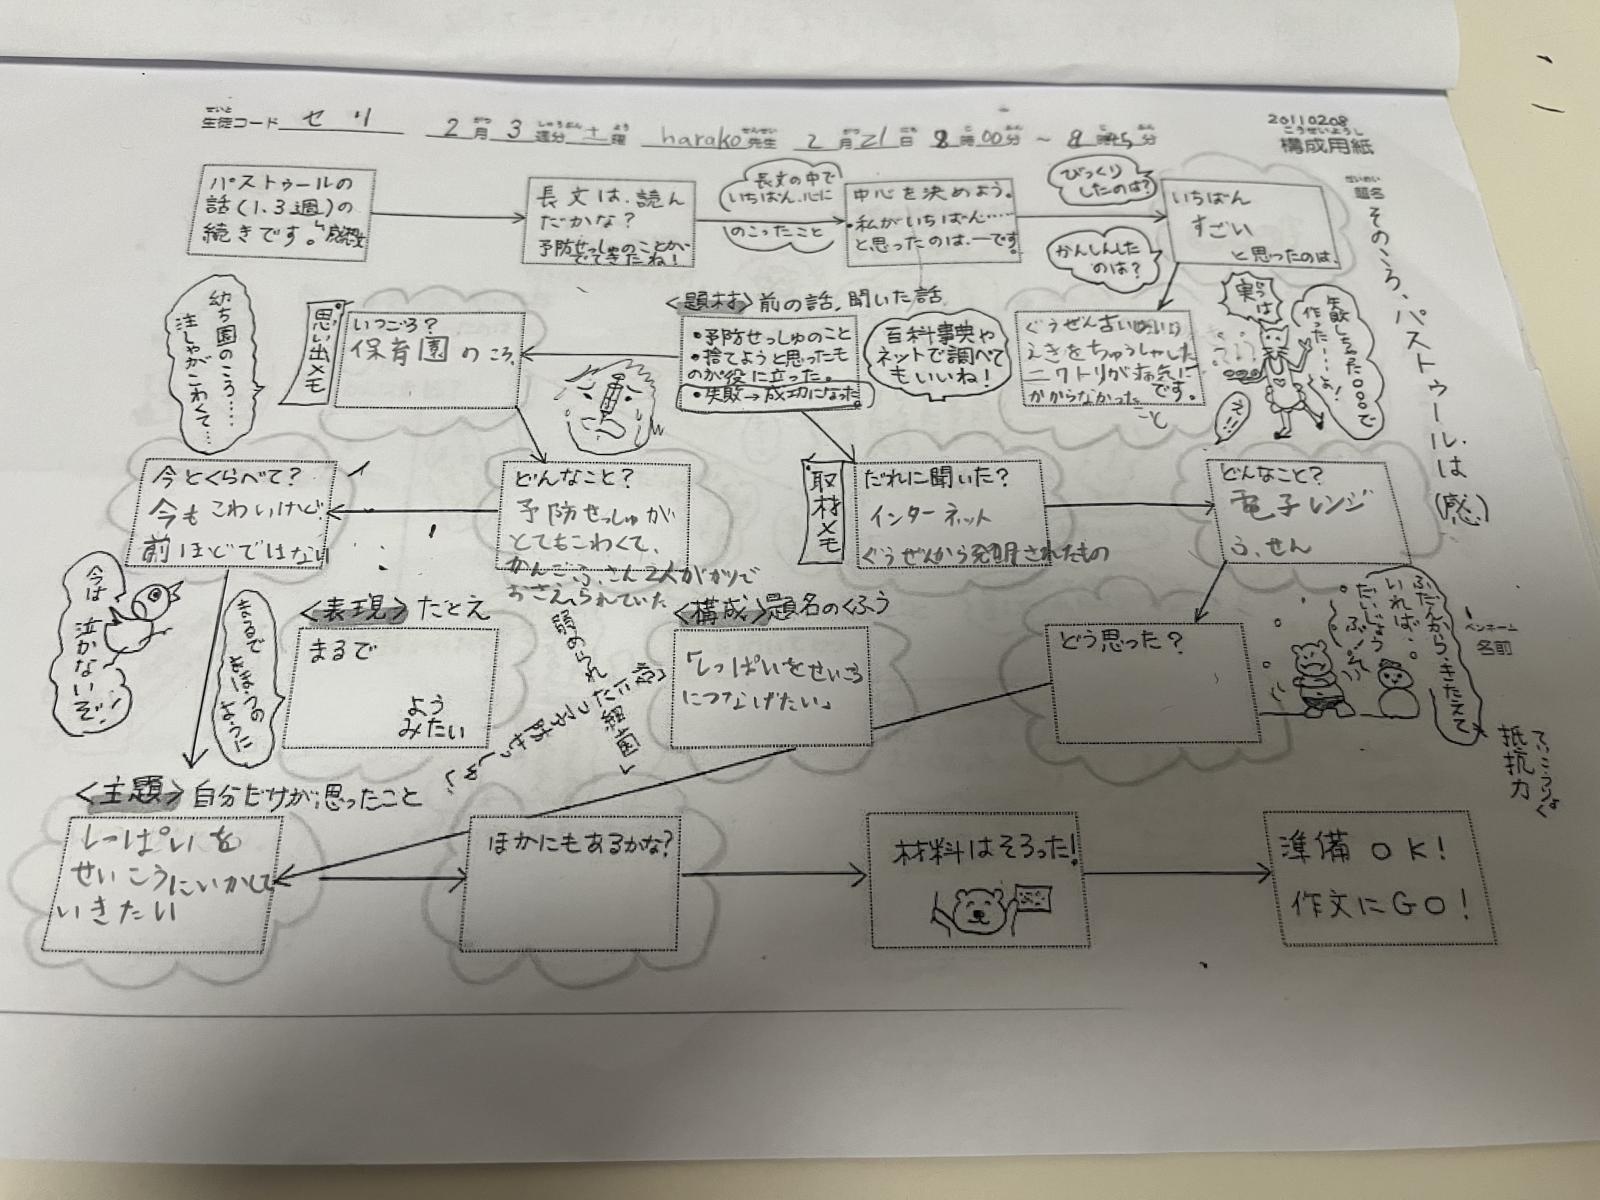 20110208
こうせいようし
構成用紙
せいと
生徒コード セリ 2月3週分土曜 harako先生 2月21日8時00分～8時45分
だいめい
題名
そのころ、パストゥールは(感)
パストゥールの
話(1.3週)の
続きです。感想文
長文は、読ん
だかな?
予防せっしゅのことが、
でてきたね!
長文の中で
いちばん、心に
のこったこと
中心を決めよう。
・私がいちばん……
と思ったのは、―です。
びっくり
したのは?
かんしんした
のは?
いちばん
すごい
と思ったのは、
ぐうぜん古い
えきをちゅうしゃした
ニワトリが病気に
かからなかった です。
こと
実は
失敗しちゃった○○○で
作った…よ!
<題材>前の話、聞いた話
・予防せっしゅのこと
・捨てようと思ったも
のが役に立った。
・失敗→成功になった。
百科事典や
ネットで調べて
もいいね!
思い出メモ
いつごろ?
保育園のころ、
幼ち園のころ…
注しゃがこわくて…
どんなこと?
予防せっしゅが
とてもこわくて、
かんごふさん2人がかりで
おさえられていた
今とくらべて?
今もこわいけど
前ほどではない
今は
泣かないぞ!
取材メモ
だれに聞いた?
インターネット
ぐうぜんから発明されたもの
どんなこと?
電子レンジ
ふせん
どう思った?
ふだんからきたえて
いれば…
だいじょうぶ…
ペンネーム
名前
ていこうりょく
抵抗力
<表現>たとえ
まるで
よう
みたい
まるで
まほうの
ように
<構成>題名のくふう
「しっぱいをせいこう
につなげたい」
弱められ
細菌
<主題>自分だけが思ったこと
しっぱいを
せいこうにいかして
いきたい
ほかにもあるかな?
材料はそろった!
準備OK!
作文にGO!